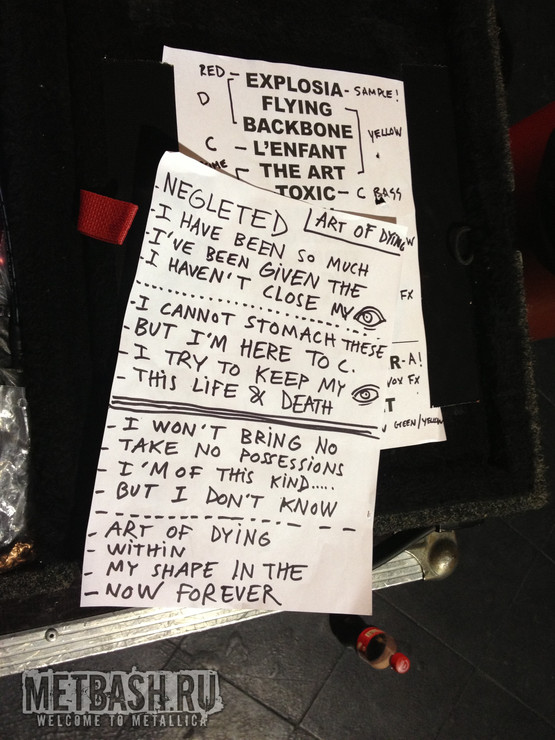 RED - EXPLOSIA - SAMPLE!
D FLYING
BACKBONE YELLOW
C - L'ENFANT
THE ART
TOXIC - C BASS
FX
R-A!
VOX FX
T
GEEN/YELLOW
- NEGLETED
ART OF DYING
- I HAVE BEEN SO MUCH
- I'VE BEEN GIVEN THE
- I HAVEN'T CLOSE MY
- I CANNOT STOMACH THESE
- BUT I'M HERE TO C.
- I TRY TO KEEP MY
- THIS LIFE & DEATH
- I WON'T BRING NO
- TAKE NO POSSESSIONS
- I'M OF THIS KIND.....
- BUT I DON'T KNOW
- ART OF DYING
- WITHIN
- MY SHAPE IN THE
- NOW FOREVER
METBASH.RU
WELCOME TO METALLICA